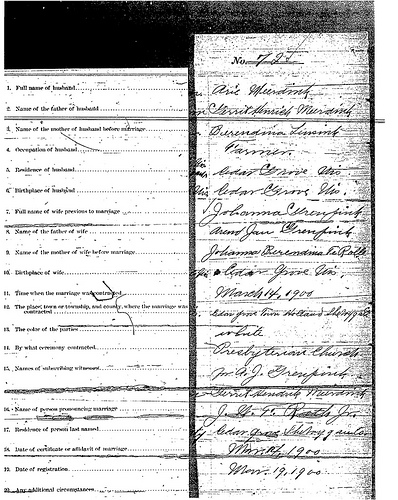 No. 725
1. Full name of husband Arie Meerdink
2. Name of the father of husband Gerrit Hendrik Meerdink
3. Name of the mother of husband before marriage Berendina
4. Occupation of husband Farmer
5. Residence of husband Cedar Grove, Wis
6. Birthplace of husband Cedar Grove Wis.
7. Full name of wife previous to marriage Johanna Grenpink
8. Name of the father of wife Jan Grenpink
9. Name of the mother of wife before marriage Johanna Berendina Te
10. Birthplace of wife Cedar Grove Wis.
11. Time when the marriage was contracted March 14, 1900
12. The place, town or township, and county, where the marriage was
contracted Holland
13. The color of the parties white
14. By what ceremony contracted Presbyterian Church
15. Names of subscribing witnesses J. Grenpink
Gerrit Hendrik Meerdink
16. Name of person pronouncing marriage J.
17. Residence of person last named Cedar Grove
18. Date of certificate or affidavit of marriage 1900
19. Date of registration Mar. 19, 1900
20. Any additional circumstances